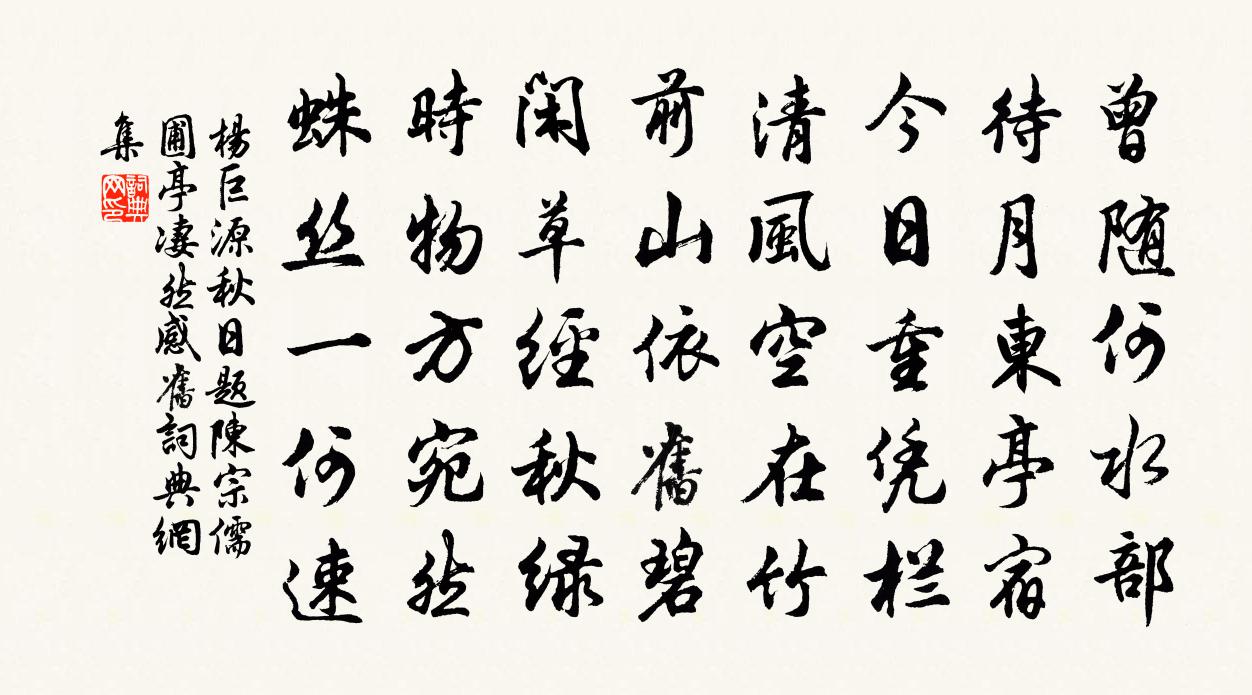 曾随何水部
待月東亭宿
今日重凭栏
清風空在竹
前山依舊碧
闲草經秋緑
時物方宛然
蛛丝一何速
楊巨源秋日題陳宗儒
圃亭凄然感舊詞典網
集
詞典
网印